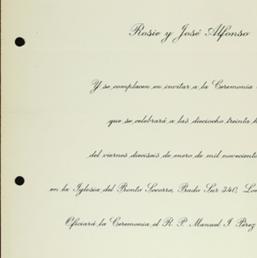 Rosie y José Alfonso
Y se complacen en invitar a la Ceremonia
que se celebrará a las dieciocho treinta h
del viernes dieciseis de enero de mil novecient
en la Iglesia del Pronto Socorro, Radio Sur 340, Lo
Oficiará la Ceremonia el R. P. Manuel I. Pérez